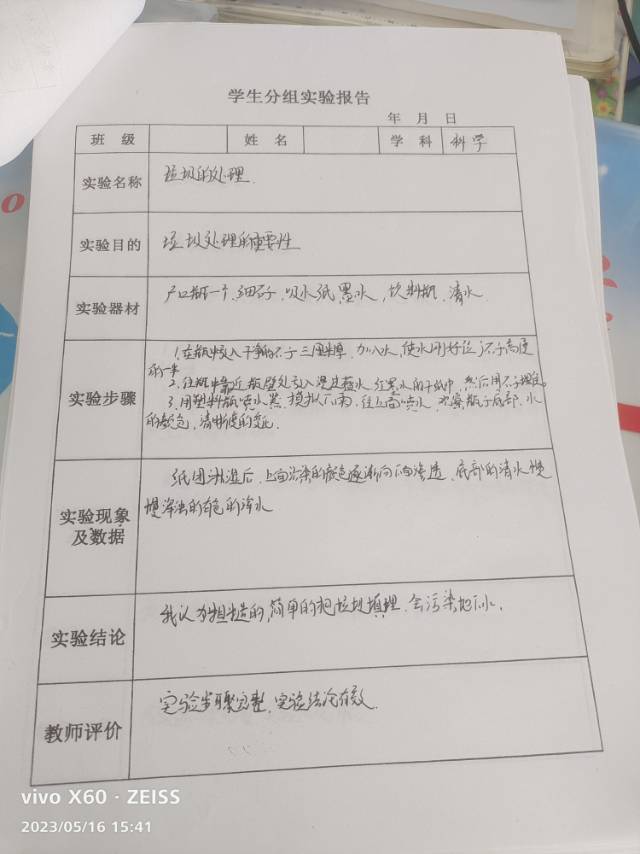 学生分组实验报告
年 月 日
班 级 姓 名 学 科 科学
实验名称 垃圾的处理.
实验目的 垃圾处理的重要性
实验器材 广口瓶一个、细石子、吸水纸,墨水,饮料瓶、清水.
实验步骤 1.在瓶中放入干净的石子 加入水,使水刚好 石子高度
的一半
2.往瓶中靠近瓶壁处放入浸过 红墨水的干纸巾,然后用石子埋住
3.用塑料瓶喷水器,模拟下雨,往上面喷水,观察瓶子底部,水
的颜色,清晰度的变化.
实验现象及数据 纸团淋湿后,上面污染的颜色逐渐向下面渗透,底部的清水慢
慢浑浊的有色的污水
实验结论 我认为粗糙的,简单的把垃圾填埋,会污染地下水.
教师评价 实验步骤完整,实验结论有效.
vivo X60 · ZEISS
2023/05/16 15:41